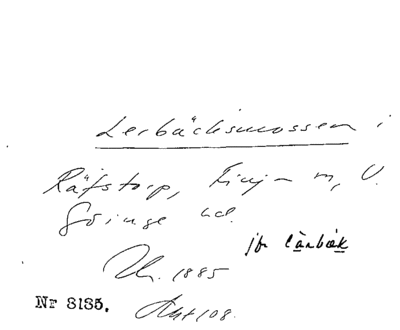 Lerbäcksmossen i
Räfstorp, Finja m, V.
Göinge hd.
jfr lärbäk
1885
Nr 8185. Akt 108.